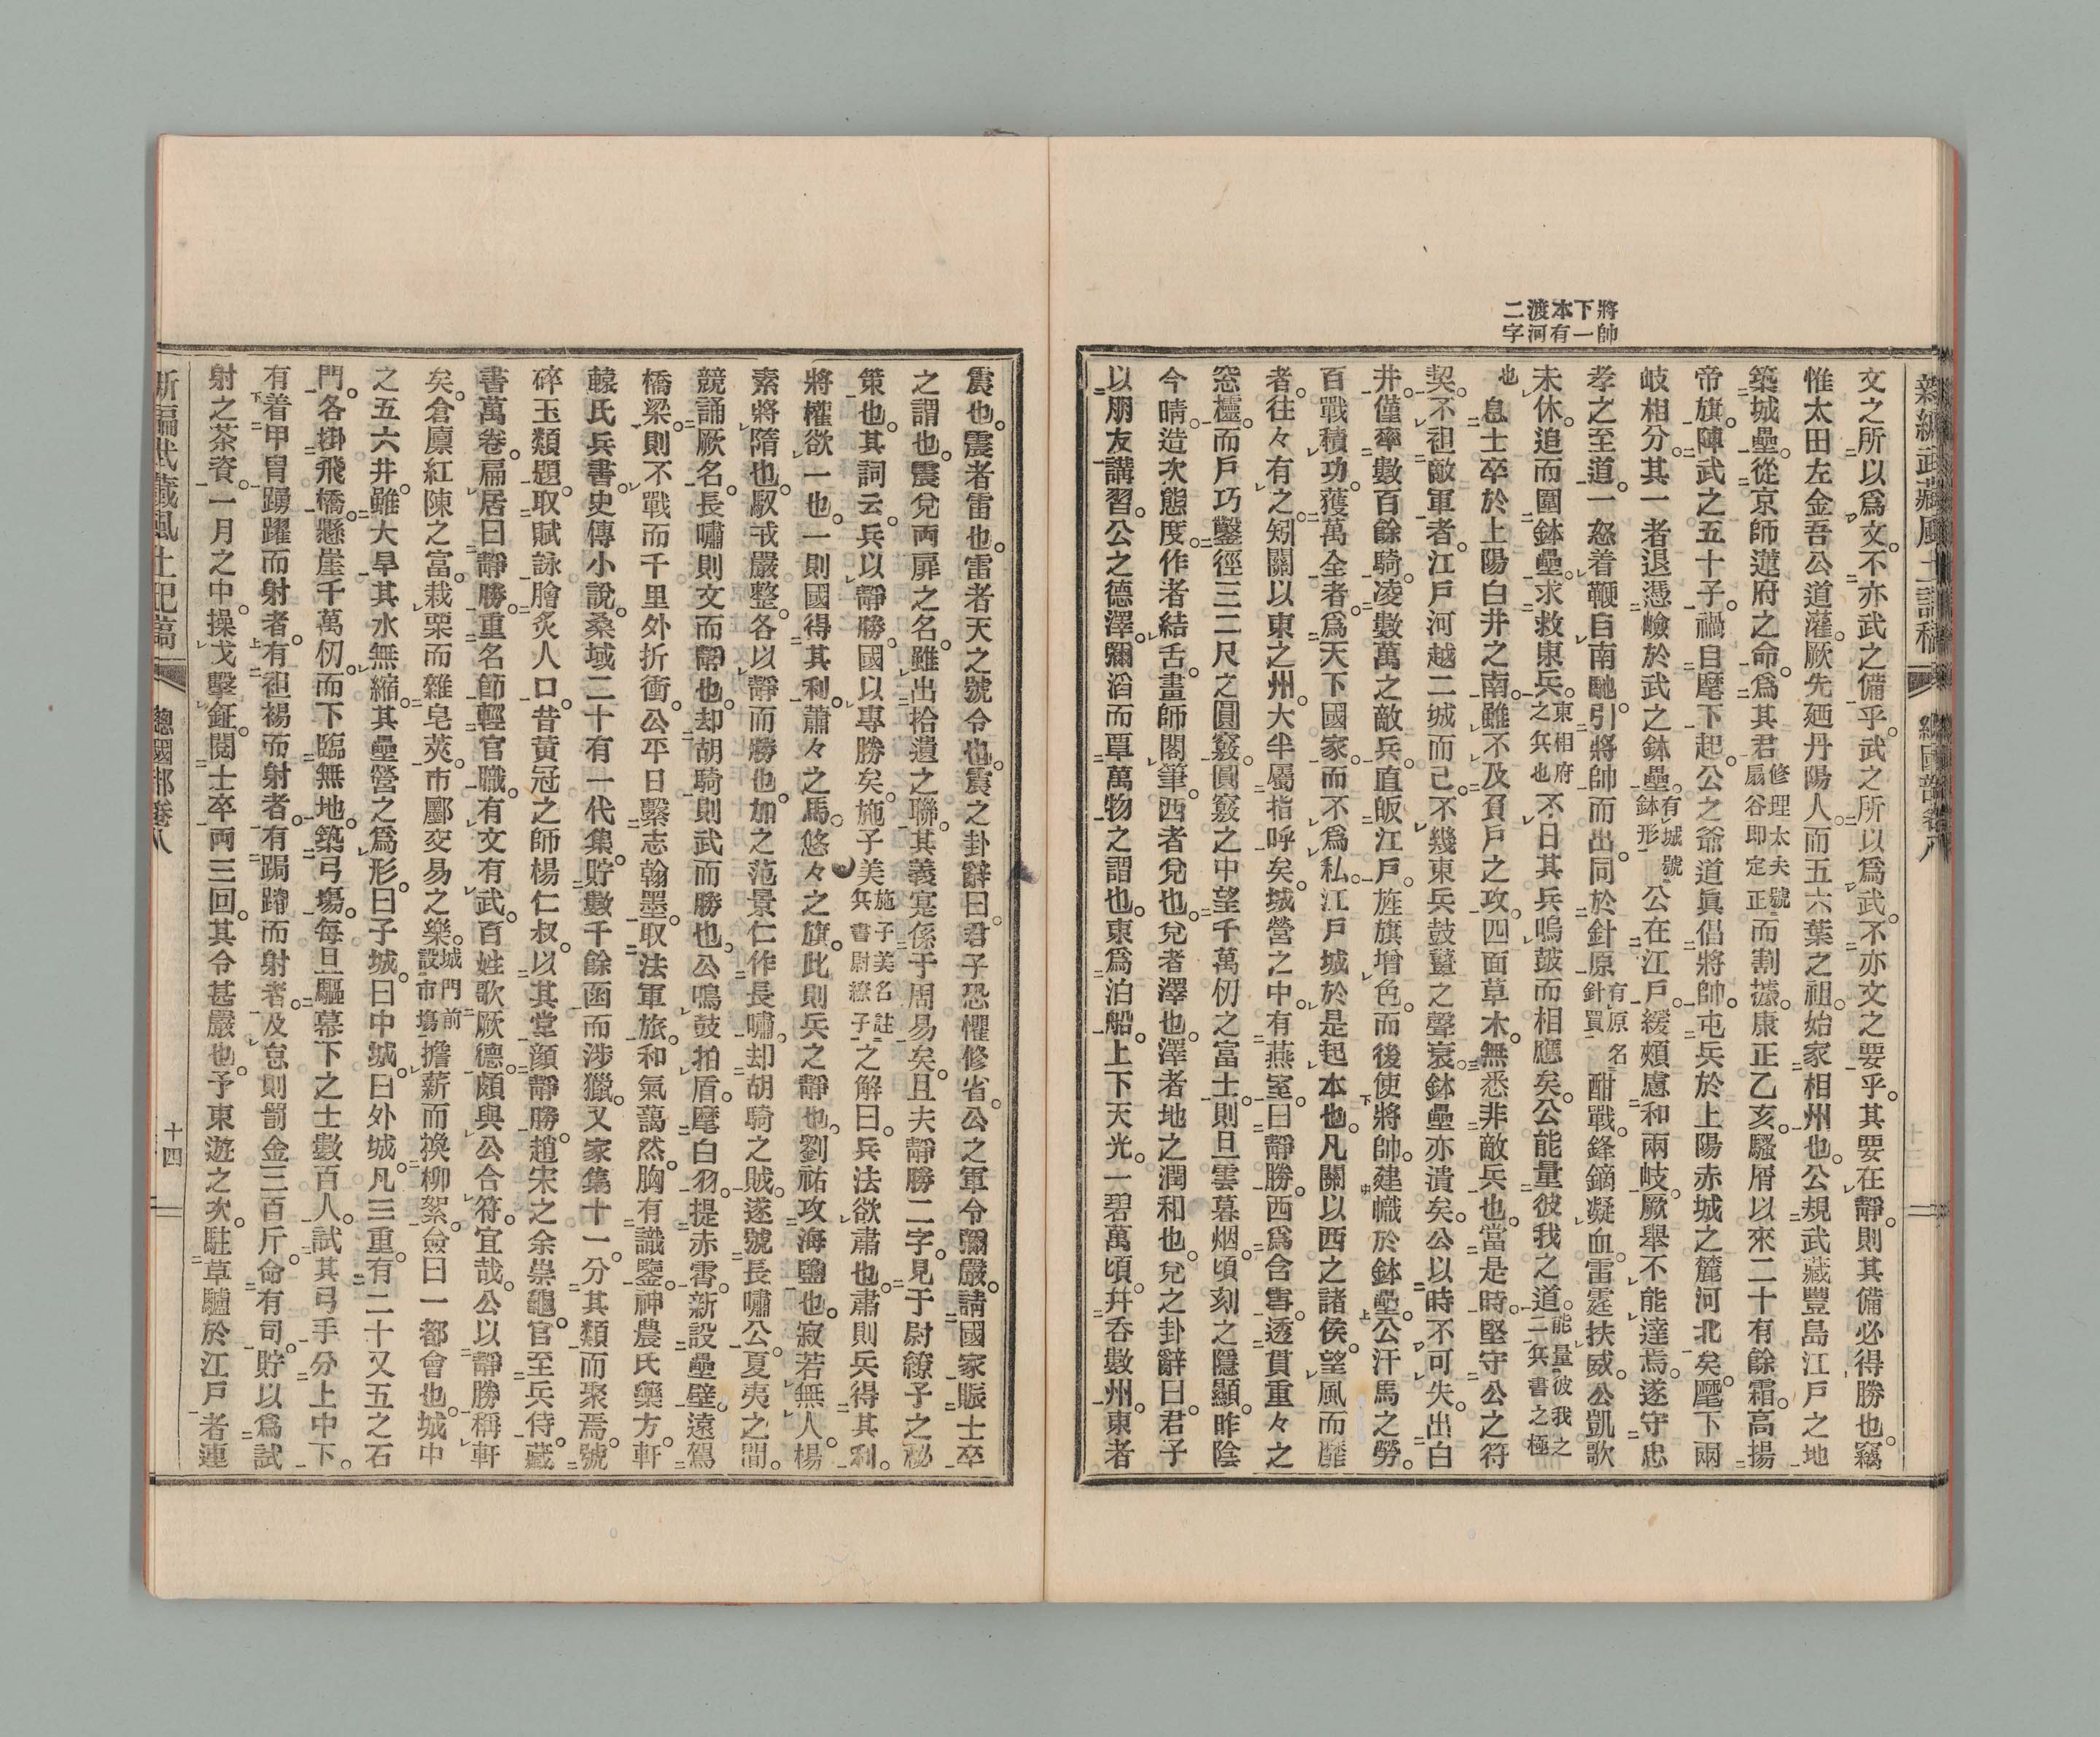 新編武藏風土記稿 總國部卷八
十三
將帥
下一
本有
渡河
二字
文之所以爲文。不亦武之備乎。武之所以爲武。不亦文之要乎。其要在靜。則其備必得勝也。竊
惟太田左金吾公道灌。厥先廼丹陽人。而五六葉之祖。始家相州也。公規武藏豐島江戸之地
築城壘。從京師蓮府之命。爲其君修理大夫號扇谷即定正而割據。康正乙亥。騷屑以來二十有餘霜。高揚
帝旗。陣武之五十子。禍自麾下起。公之爺道眞倡將帥。屯兵於上陽赤城之麓河北矣。麾下兩
岐相分。其一者退憑嶮於武之鉢壘。有城號鉢形公在江戸。緩頰慮和兩岐。厥舉不能達焉。遂守忠
孝之至道。一怒着鞭自南馳。引將帥而出。同於針原有原名針買酣戰。鋒鏑凝血。雷霆扶威。公凱歌
未休。追而圍鉢壘。求救東兵。東相府之兵也不日其兵鳴鼓而相應矣。公能量彼我之道。能量彼我之二兵書之極
也息士卒於上陽白井之南。雖不及負戸之攻。四面草木。無悉非敵兵也。當是時。堅守公之符
契。不徂敵軍者。江戸河越二城而已。不幾東兵鼓鼙之聲衰。鉢壘亦潰矣。公以時不可失。出白
井。僅率數百餘騎。凌數萬之敵兵。直皈江戸。旌旗增色。而後使將帥。建幟於鉢壘。公汗馬之勞。
百戰積功。獲萬全者。爲天下國家。而不爲私。江戸城於是起本也。凡關以西之諸侯。望風而靡
者。往々有之。矧關以東之州。大半屬指呼矣。城營之中。有燕室。曰靜勝。西爲含雪。透貫重々之
窓櫺。而戸巧鑿徑三二尺之圓竅。圓竅之中。望千萬仞之富士。則旦雲暮烟。頃刻之隱顯。昨陰
今晴。造次態度。作者結舌。畫師閣筆。西者兌也。兌者澤也。澤者地之潤和也。兌之卦辭曰。君子
以朋友講習。公之德澤。彌滔而覃萬物之謂也。東爲泊船。上下天光。一碧萬頃。幷呑數州。東者
震也。震者雷也。雷者天之號令也。震之卦辭曰。君子恐懼修省。公之軍令彌嚴。請國家賑士卒
之謂也。震兌兩扉之名。雖出拾遺之聯。其義寔係于周易矣。且夫靜勝二字。見于尉繚子之秘
策也。其詞云。兵以靜勝。國以專勝矣。施子美施子美名註兵書尉繚子之解曰。兵法欲肅也。肅則兵得其利。
將權欲一也。一則國得其利。蕭々之馬。悠々之旗。此則兵之靜也。劉祐攻海鹽也。寂若無人。楊
素將隋也。馭戎嚴整。各以靜而勝也。加之范景仁作長嘯。却胡騎之賊。遂號長嘯公。夏夷之間。
競誦厥名。長嘯則文而罄也。却胡騎則武而勝也。公鳴鼓拍盾。麾白羽。提赤霄。新設壘壁。遠駕
橋梁。則不戰而千里外折衝。公平日繫志翰墨。取法軍旅。和氣藹然。胸有識鑒。神農氏藥方。軒
轅氏兵書。史傳小說。桑域二十有一代集。貯數千餘函而涉獵。又家集十一。分其類而聚焉。號
碎玉類題。取賦詠膾炙人口。昔黄冠之師楊仁叔。以其堂顔靜勝。趙宋之余崇龜。官至兵侍。藏
書萬卷。扁居曰靜勝。重名節輕官職。有文有武。百姓歌厥德。頗與公合符。宜哉。公以靜勝稱軒
矣。倉廩紅陳之富。栽栗而雜皂莢。市鄽交易之樂。城門前設市塲擔薪而換柳絮。僉曰一都會也。城中
之五六井。雖大旱其水無縮。其壘營之爲形。曰子城。曰中城。曰外城。凡三重。有二十又五之石
門。各掛飛橋。懸崖千萬仞。而下臨無地。築弓塲。每旦驅幕下之士數百人。試其弓手。分上中下。
有着甲冑踴躍而射者。有袒裼而射者。有跼蹐而射者。及怠則罰金三百斤。命有司。貯以爲試
射之茶資。一月之中。操戈擊鉦。閱士卒両三回。其令甚嚴也。予東遊之次。駐草驢於江戸者連
新編武藏風土記稿 總國部卷八
十四